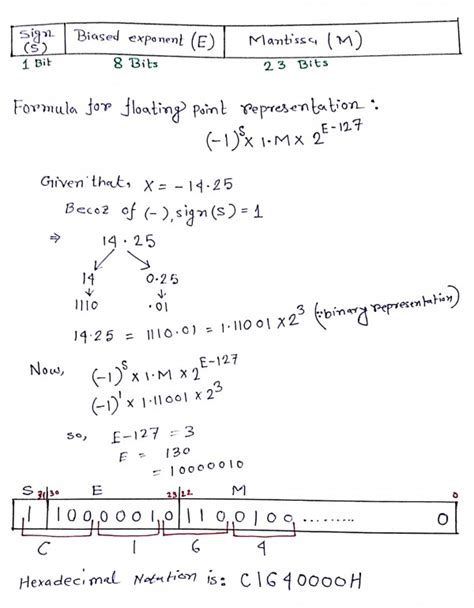 Sign (S) Biased exponent (E) Mantissa (M)
1 Bit 8 Bits 23 Bits
Formula for floating point representation :
(-1)^S x 1.M x 2^E-127
Given that, X = -14.25
Becoz of (-), sign(S) = 1
⇒ 14.25
14 0.25
↓ ↓
1110 .01
14.25 = 1110.01 = 1.11001 x 2^3 (∵ binary representation)
Now, (-1)^S x 1.M x 2^E-127
(-1)^1 x 1.11001 x 2^3
so, E-127 = 3
E = 130
= 10000010
S 31 30 E 23 22 M 0
1 1000001 0 1100100 ......... 0
C 1 6 4
Hexadecimal Notation is: C1640000H